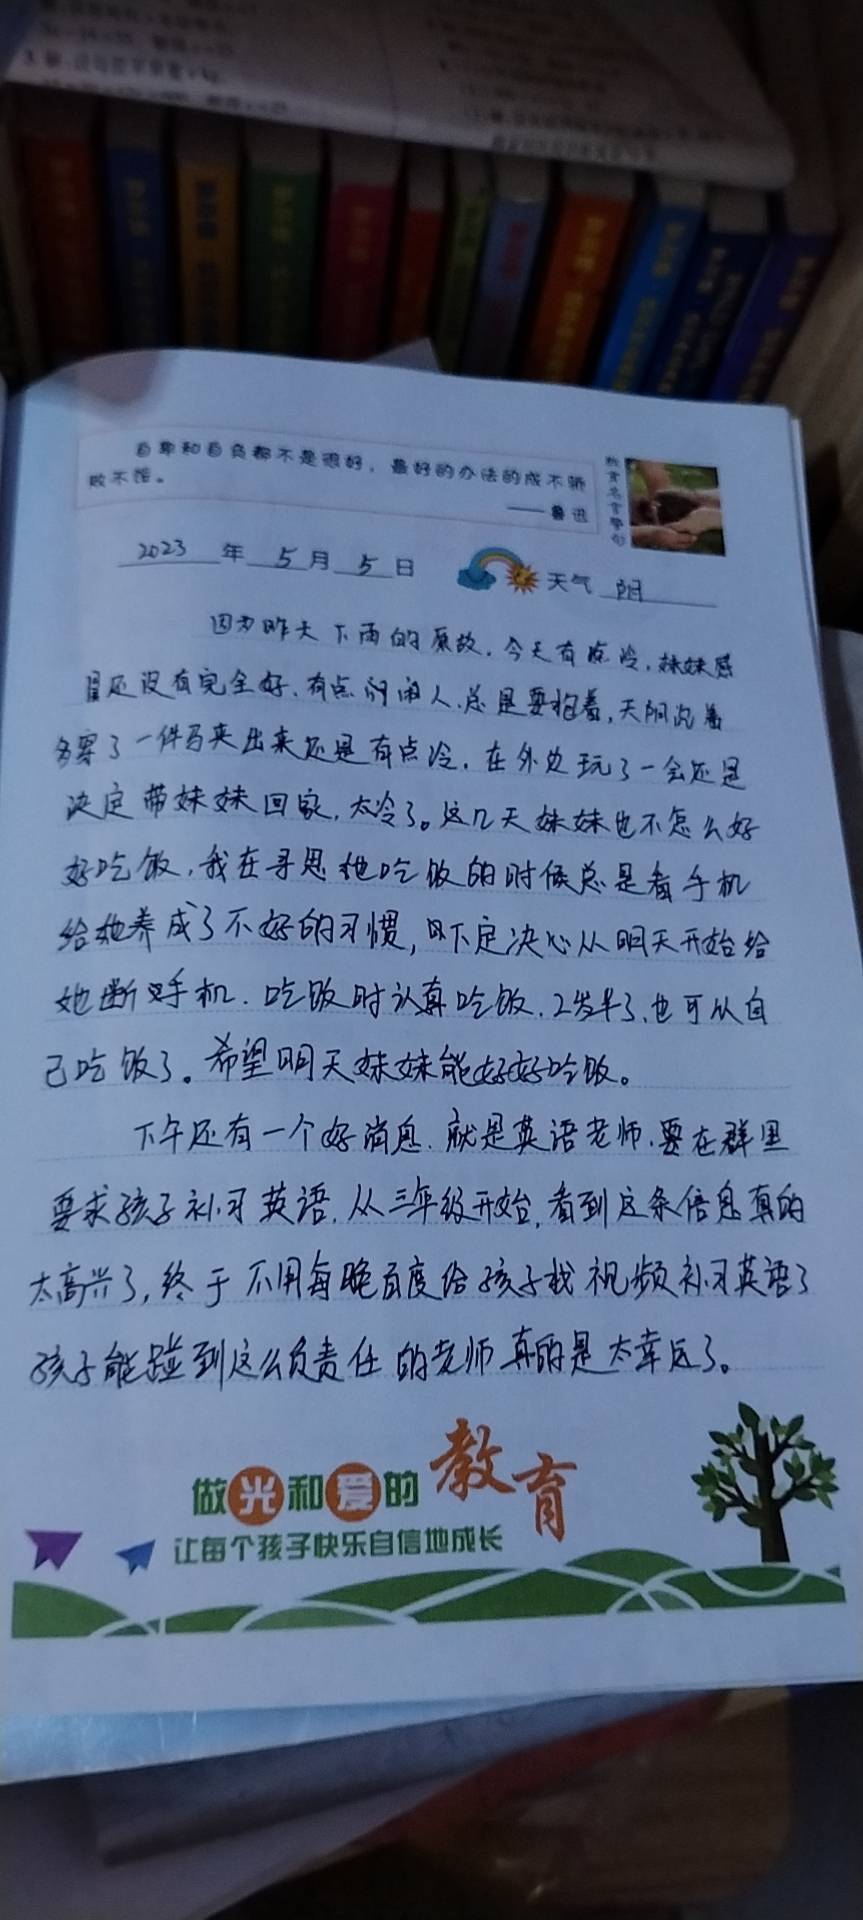 自卑和自负都不是很好，最好的办法的成不骄
败不馁。
——鲁迅
教育名言警句
2023年5月5日 天气 阴
因为昨天下雨的原故，今天有点冷，妹妹感
冒还没有完全好，有点闹人，总是要抱着，天阴沉着
多穿了一件马夹出来还是有点冷，在外边玩了一会还是
决定带妹妹回家，太冷了。这几天妹妹也不怎么好
好吃饭，我在寻思她吃饭的时候总是看手机
给她养成了不好的习惯，下定决心从明天开始给
她断手机，吃饭时认真吃饭，2岁半了，也可以自
己吃饭了。希望明天妹妹能好好吃饭。
下午还有一个好消息，就是英语老师，要在群里
要求孩子补习英语，从三年级开始，看到这条信息真的
太高兴了，终于不用每晚百度给孩子找视频补习英语了
孩子能碰到这么负责任的老师真的是太幸运了。
做光和爱的教育
让每个孩子快乐自信地成长